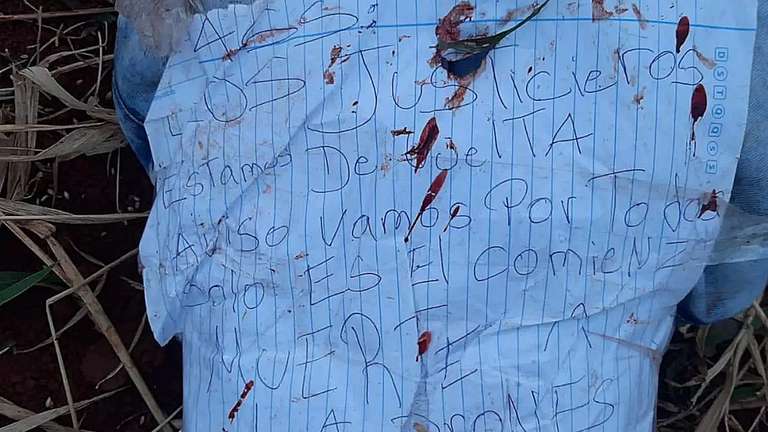 LOS JUSTICIEROS
ESTAMOS DE VUELTA
AVISO VAMOS POR TODOS
SOLO ES EL COMIENZ
MUERTE A
LADRONES